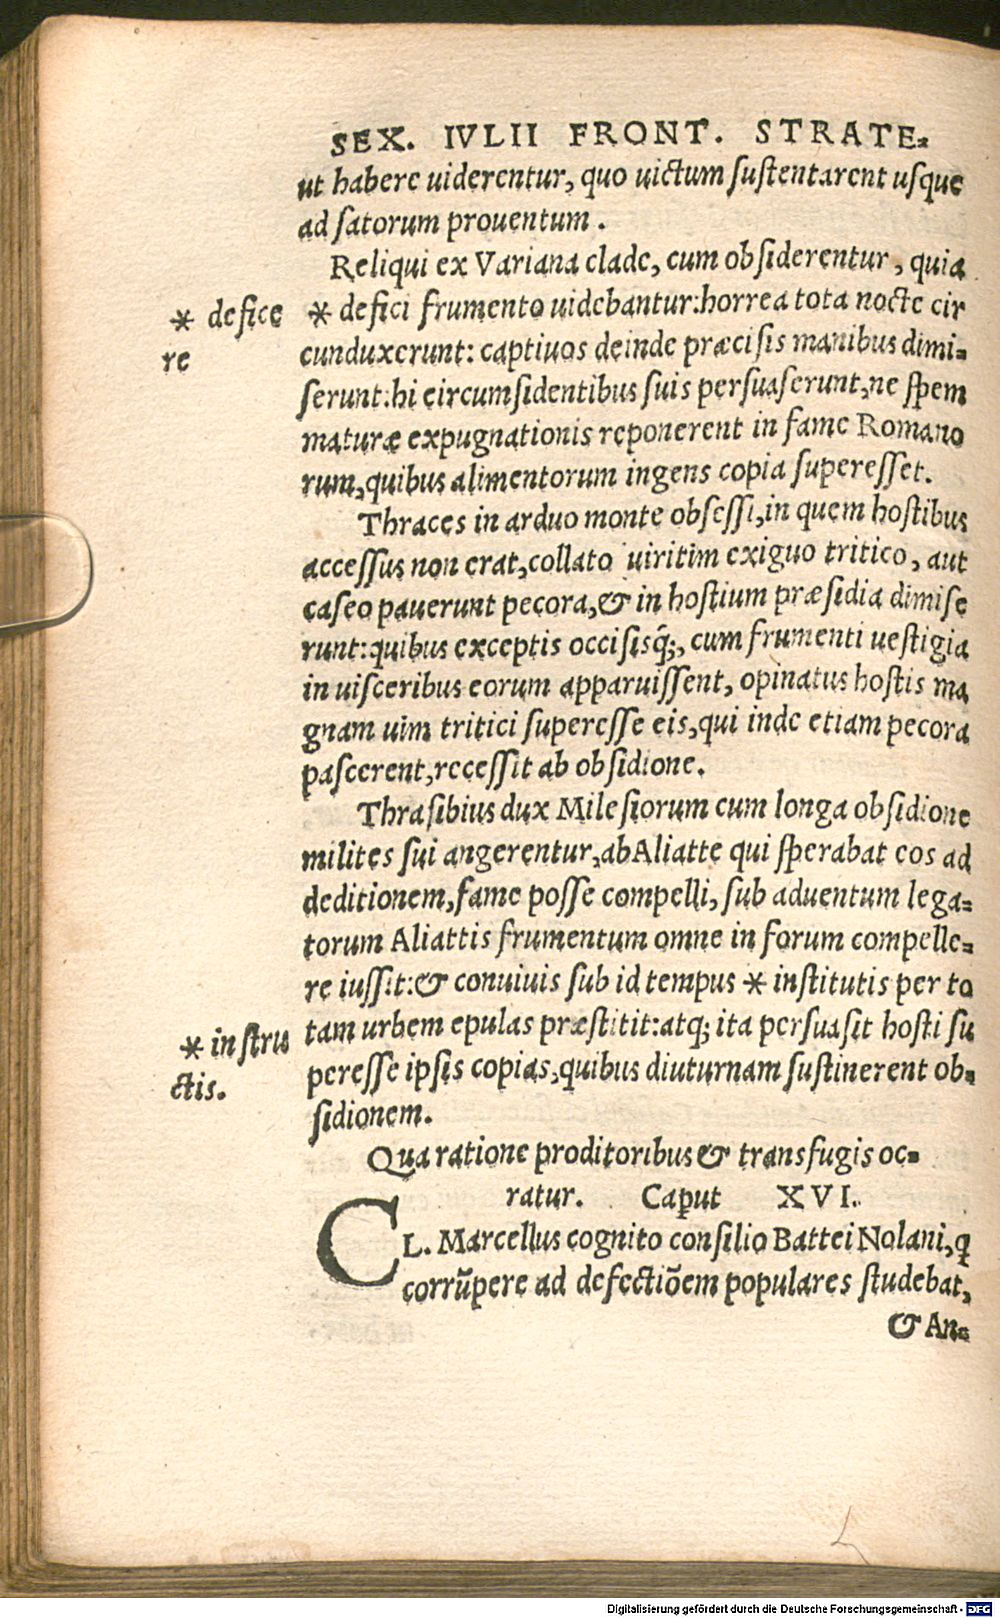 SEX. IVLII FRONT. STRATE=
ut habere uiderentur, quo uictum sustentarent usque
ad satorum prouentum.
Reliqui ex Variana clade, cum obsiderentur, quia
* defici frumento uidebantur: horrea tota nocte cir
* defice
re
cunduxerunt: captiuos deinde præcisis manibus dimi=
serunt: hi circumsidentibus suis persuaserunt, ne spem
maturæ expugnationis reponerent in fame Romano
rum, quibus alimentorum ingens copia superesset.
Thraces in arduo monte obsessi, in quem hostibus
accessus non erat, collato uiritim exiguo tritico, aut
caseo pauerunt pecora, & in hostium præsidia dimise
runt: quibus exceptis occisisq́;, cum frumenti uestigia
in uisceribus eorum apparuissent, opinatus hostis ma
gnam uim tritici superesse eis, qui inde etiam pecora
pascerent, recessit ab obsidione.
Thrasibius dux Milesiorum cum longa obsidione
milites sui angerentur, ab Aliatte qui sperabat eos ad
deditionem, fame posse compelli, sub aduentum lega=
torum Aliattis frumentum omne in forum compelle=
re iussit: & conuiuis sub id tempus * institutis per to
tam urbem epulas præstitit: atq; ita persuasit hosti su
* instru
ctis.
peresse ipsis copias, quibus diuturnam sustinerent ob=
sidionem.
Qua ratione proditoribus & transfugis oc=
ratur. Caput XVI.
CL. Marcellus cognito consilio Battei Nolani, q̃
corrũpere ad defectiõem populares studebat,
& An=
Digitalisierung gefördert durch die Deutsche Forschungsgemeinschaft - DFG